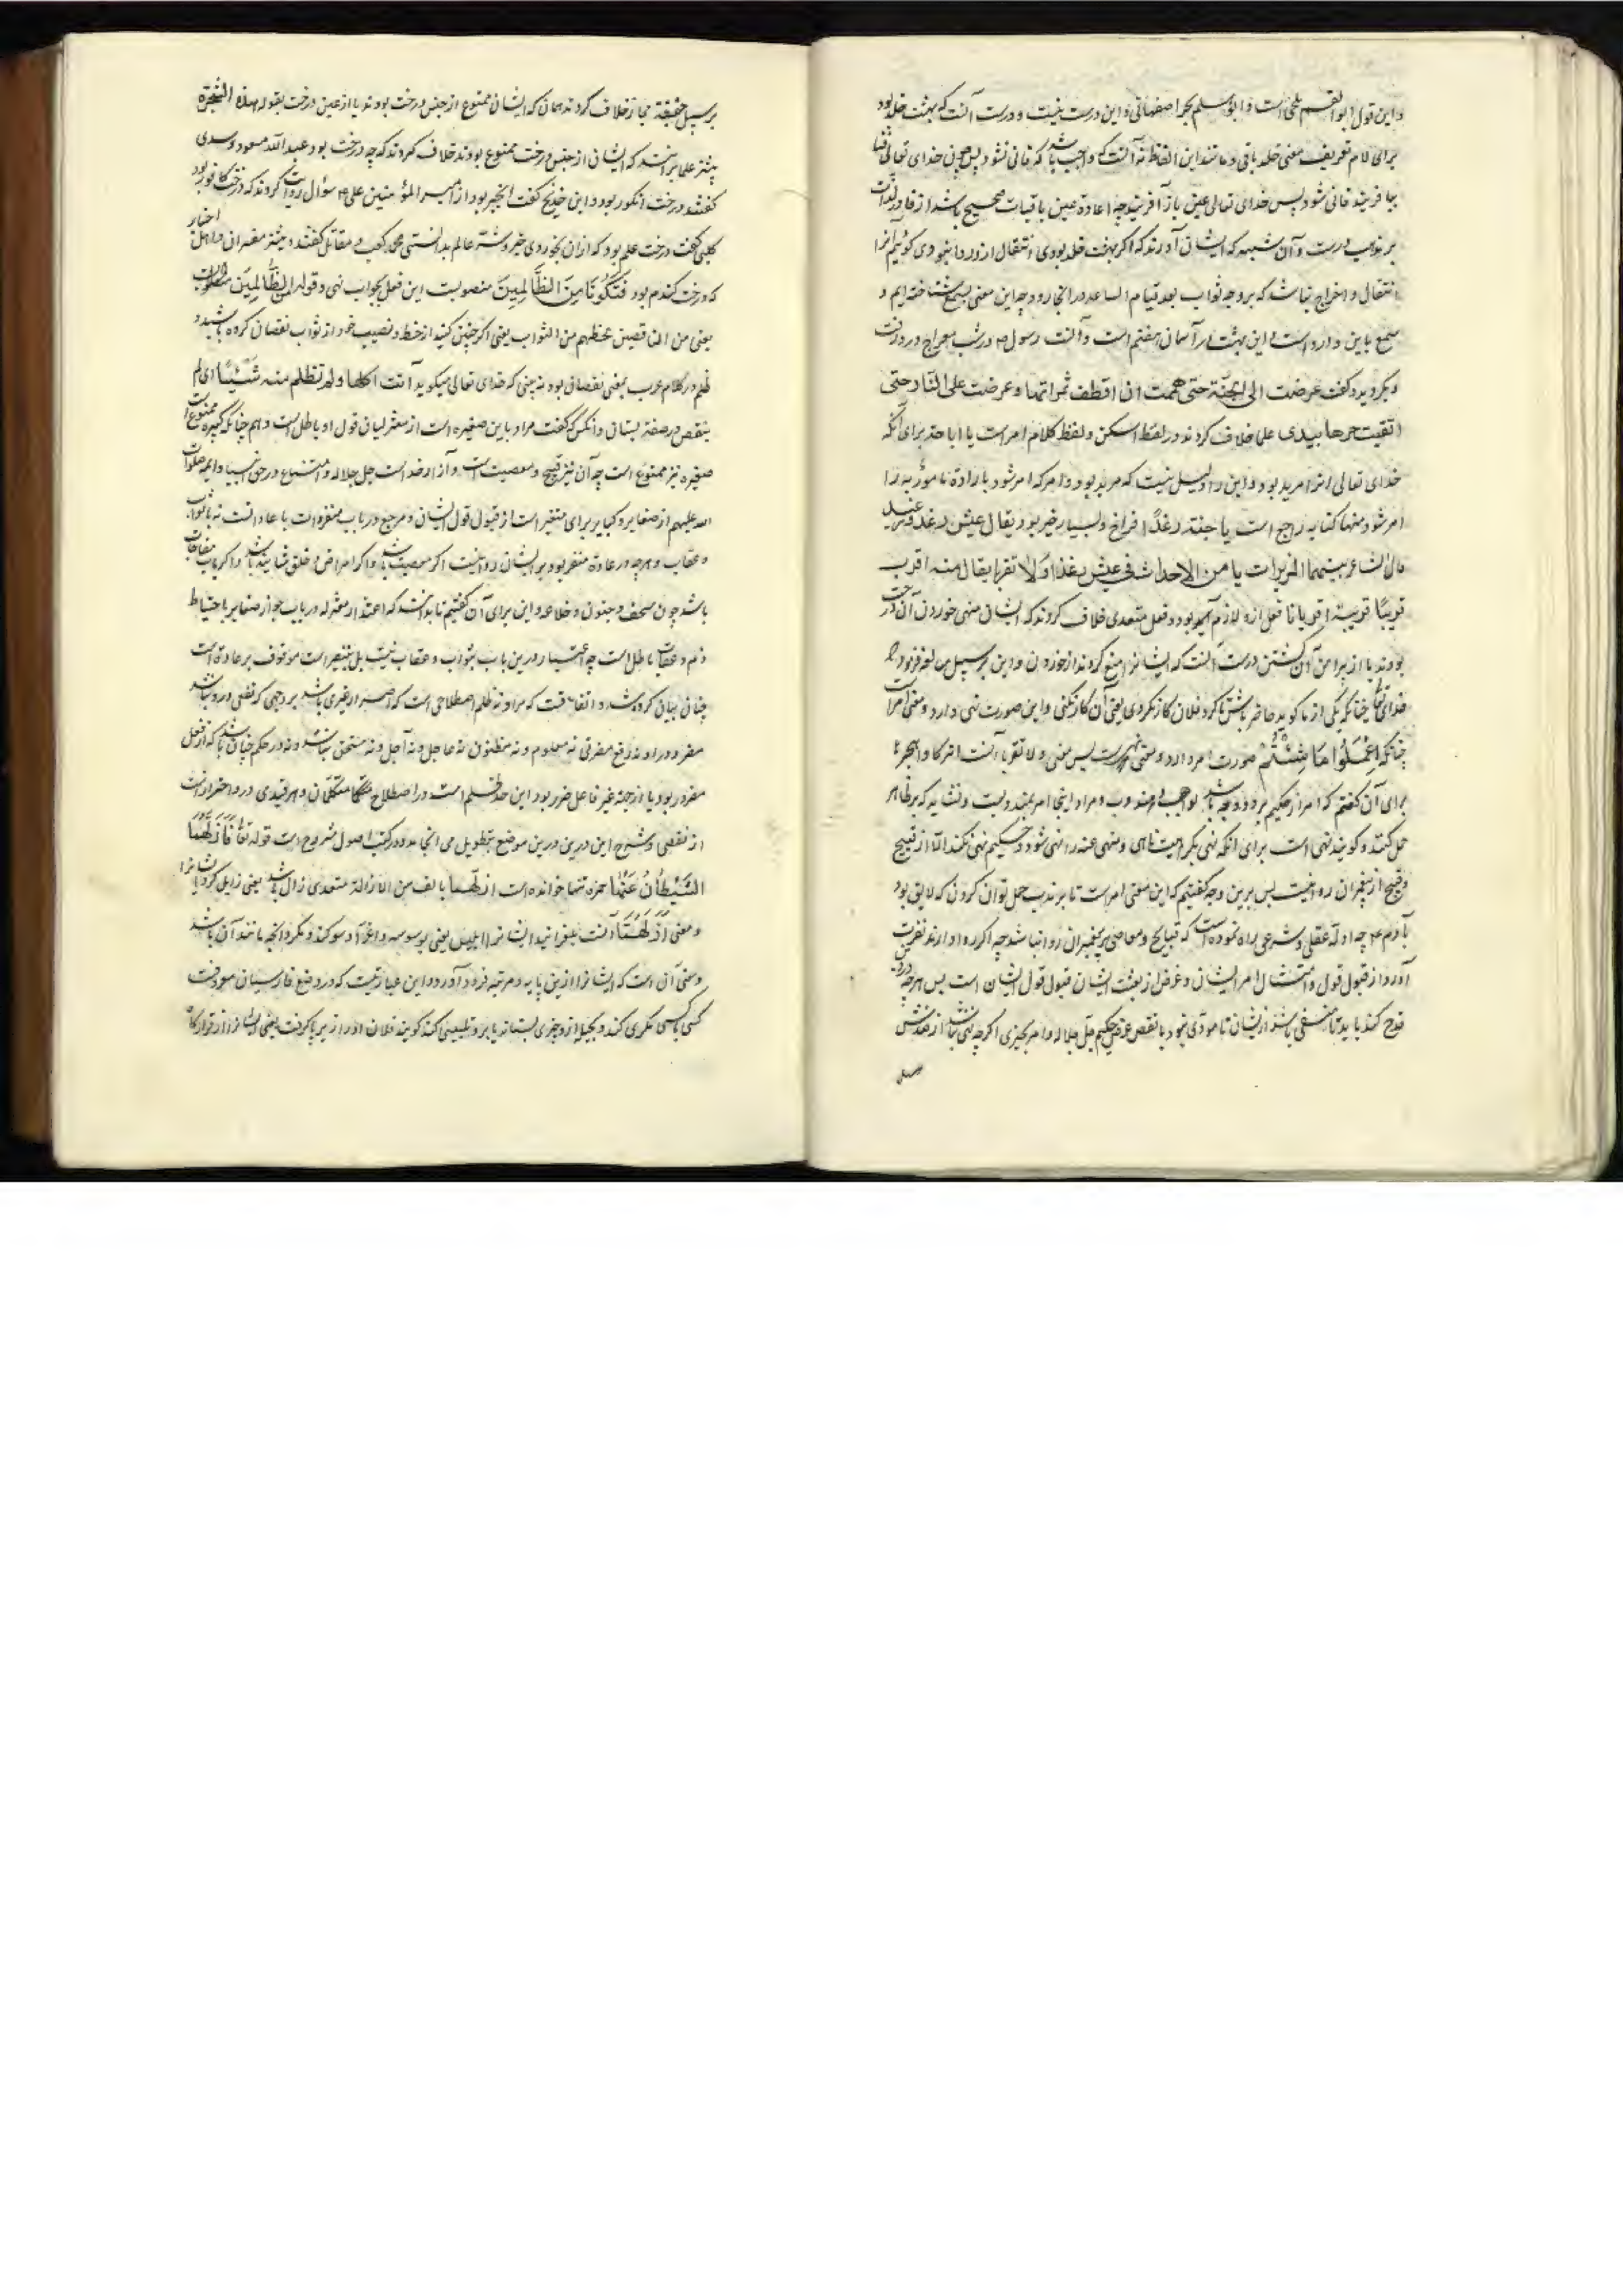 واین قول ابوالقسم بلخی است و ابومسلم بحر اصفهانی و این درست نیست و درست آنست که بهشت خلد بود
برای لام تعریف معنی خلد باقی و مانند این الفاظ نه آنست که واجب باشد که فانی نشود پس چون خدای تعالی
بیافریند فانی شود پس خدای تعالی عین باز آفریند چه اعادة عین باقیات صحیح باشد از قادر الذات
بر مذهب درست و آن شبهه که ایشان آوردند که اگر بهشت خلد بودی انتقال ازو روا نبودی گوئیم آنرا
انتقال و اخراج نباشد که بر وجه ثواب بعد قیام الساعه در آنجا رود چه این معنی بسمع شناخته ایم و
سمع باین وارد است و این بهشت بر آسمان هفتم است و آنست رسول م در شب معراج در رفت
و بگردید و گفت عرضت الی الجنّة حتی هممت ان اقطف ثمراتها و عرضت علی النار حتی
اتقیت حرها بیدی علما خلاف کردند در لفظ اسکن و لفظ کلام امر است یا اباحة برای آنکه
خدای تعالی امر مرید بود و این را دلیل نیست که مرید بود و امر که امر شود باراده مامور به را
امر شود منها کنایه راجع است با جنة رغدًا فراخ و بسیار خیر بود یقال عیش رغد
قال الشاعر بینما المرء تراه ناعما یامن الاحداث فی عیش رغد و لا تقربا یقال منه اقرب
قربًا قربة اقربانا فعل ازو لازم بود و فعل متعدی خلاف کردند که ایشان منهی خوردن آن درخت
بودند یا از پیرامن آن گشتن درست آنست که ایشانرا منع کردند از خوردن و این بر سبیل مبالغه فرمود
خدای تعالی چنانکه یکی از ما گوید حاضر باش تا گرد فلان کار نگردی یعنی آن کار نکنی و این صورت نهی دارد و معنی امر
چنانکه اِعْمَلُوا مَا شِئْتُمْ صورت امر دارد و معنی نهی است پس معنی و لا تقربا آنست اترکا و اهجرا
برای آن گفتم که امر از حکیم بر دو وجه باشد یا واجب یا مندوب و مراد اینجا امر مندوبست و نشاید که بر ظاهر
حمل کنند و گویند نهی است برای آنکه نهی بکراهیت ناهی و منهی عنه را نهی شود و حکیم نهی نکند الّا از قبیح
و قبیح از پیغمبران روا نیست پس برین وجه گفتیم که این معنی امر است تا بر ندب حمل توان کردن که لایق بود
بآدم ع چه ادلّه عقلی و شرعی راه نموده است که قبایح و معاصی بر پیغمبران روا نباشد چه اگر روا دارند نفرت
آورد از قبول قول و امتثال امر ایشان و غرض از بعثت ایشان قبول قول ایشان است پس هرچه در
قدح کند باید تا منتفی باشد از ایشان تا مؤدی نبود با نقص غرض حکیم جلّ جلاله و امر بچیزی اگرچه نهی نباشد از ضدش
بر سبیل حقیقة مجاز خلاف کردند همان که ایشان ممنوع از جنس درخت بودند یا از عین درخت بقوله هذه الشجرة
بیشتر علما برآنند که ایشان از جنس درخت ممنوع بودند خلاف کردند که چه درخت بود عبدالله مسعود و سدی
گفتند درخت انگور بود و ابن جریح گفت انجیر بود از امیر المؤمنین علی م سؤال روایت کردند که درخت کافور بود
کلبی گفت درخت علم بود که از آن بخوردی خیر و شر عالم بدانستی محمد کعب و مقاتل گفتند و بیشتر مفسران و اهل اخبار
که درخت گندم بود فَتَکُونَا مِنَ الظَّالِمِینَ منصوبست این فعل بجواب نهی و قوله مِنَ الظَّالِمِینَ
یعنی من الناقصین بحظهم من الثواب یعنی اگر چنین کنید از حظ و نصیب خود از ثواب نقصان کرده باشید و
ظلم در کلام عرب بمعنی نقصان بود نه بینی که خدای تعالی میگوید آتت اکلها و لم تظلم منه شَیْئًا ای لم
ینقص در صفة بستان و آنکس که گفت مراد باین صغیره است از معتزلیان قول او باطل است و هم چنانکه کبیره ممنوع است
صغیره نیز ممنوع است چه آن نیز قبیح و معصیت است و آزار خداست جل جلاله و امتناع در حق انبیا و ائمه صلوات
الله علیهم از صغایر و کبایر برای تنفیر است از قبول قول ایشان و مرجع در باب منفرات با عادتست نه باثواب
و عقاب و هرچه در عادة منفر بود بر ایشان روا نیست اگر معصیت باشد و اگر امراض و خلق شاینه باشد و اگر باب
باشد چون سخف و جنون و خلاعه و این برای آن گفتیم تا بدانند که اعتذار معتزله در باب جواز صغایر باحتیاط
ذم و عقاب باطل است چه اعتبار درین باب بثواب و عقاب نیست بل بتنفیر است موقوف بر عادة است
چنان بیان کرده شد و اتفاقست که مراد نه ظلم اصطلاحی است که ضرر از غیری باشد بر وجهی که نفعی درو نباشد
مضرور را و نه دفع مضرتی نه معلوم و نه مظنون نه عاجل و نه آجل و نه مستحق نباشد و نه در حکم چنان باشد که از فعل
مضرور بود یا از جهة غیر فاعل ضرر بود این حد ظلم است در اصطلاح متکلمان و هر قیدی درو احتراز است
از نقضی و شرح این درین موضع بتطویل می انجامد و در کتب اصول مشروح است قوله تعالی فَاَزَلَّهُمَا
الشَّیْطَانُ عَنْهَا حمزه تنها خوانده است ازالهما بالف من الازالة متعدی زال باشد یعنی زایل کرد ایشانرا
و معنی اَزَلَّهُمَا آنست بلغزانید ایشانرا ابلیس یعنی بوسوسه و اغرا و سوگند و مکر و آنچه ماخذ آن باشد
و معنی آن است که ایشانرا ازین پایه و مرتبه فرود آورد و این عبارتیست که در وضع فارسیان معروفست
کسی با کسی مکری کند و بحیله ازو چیزی بستاند یا برو تلبیسی کند گویند فلان او را از پر با گرفت یعنی ایشانرا از قرارگاه